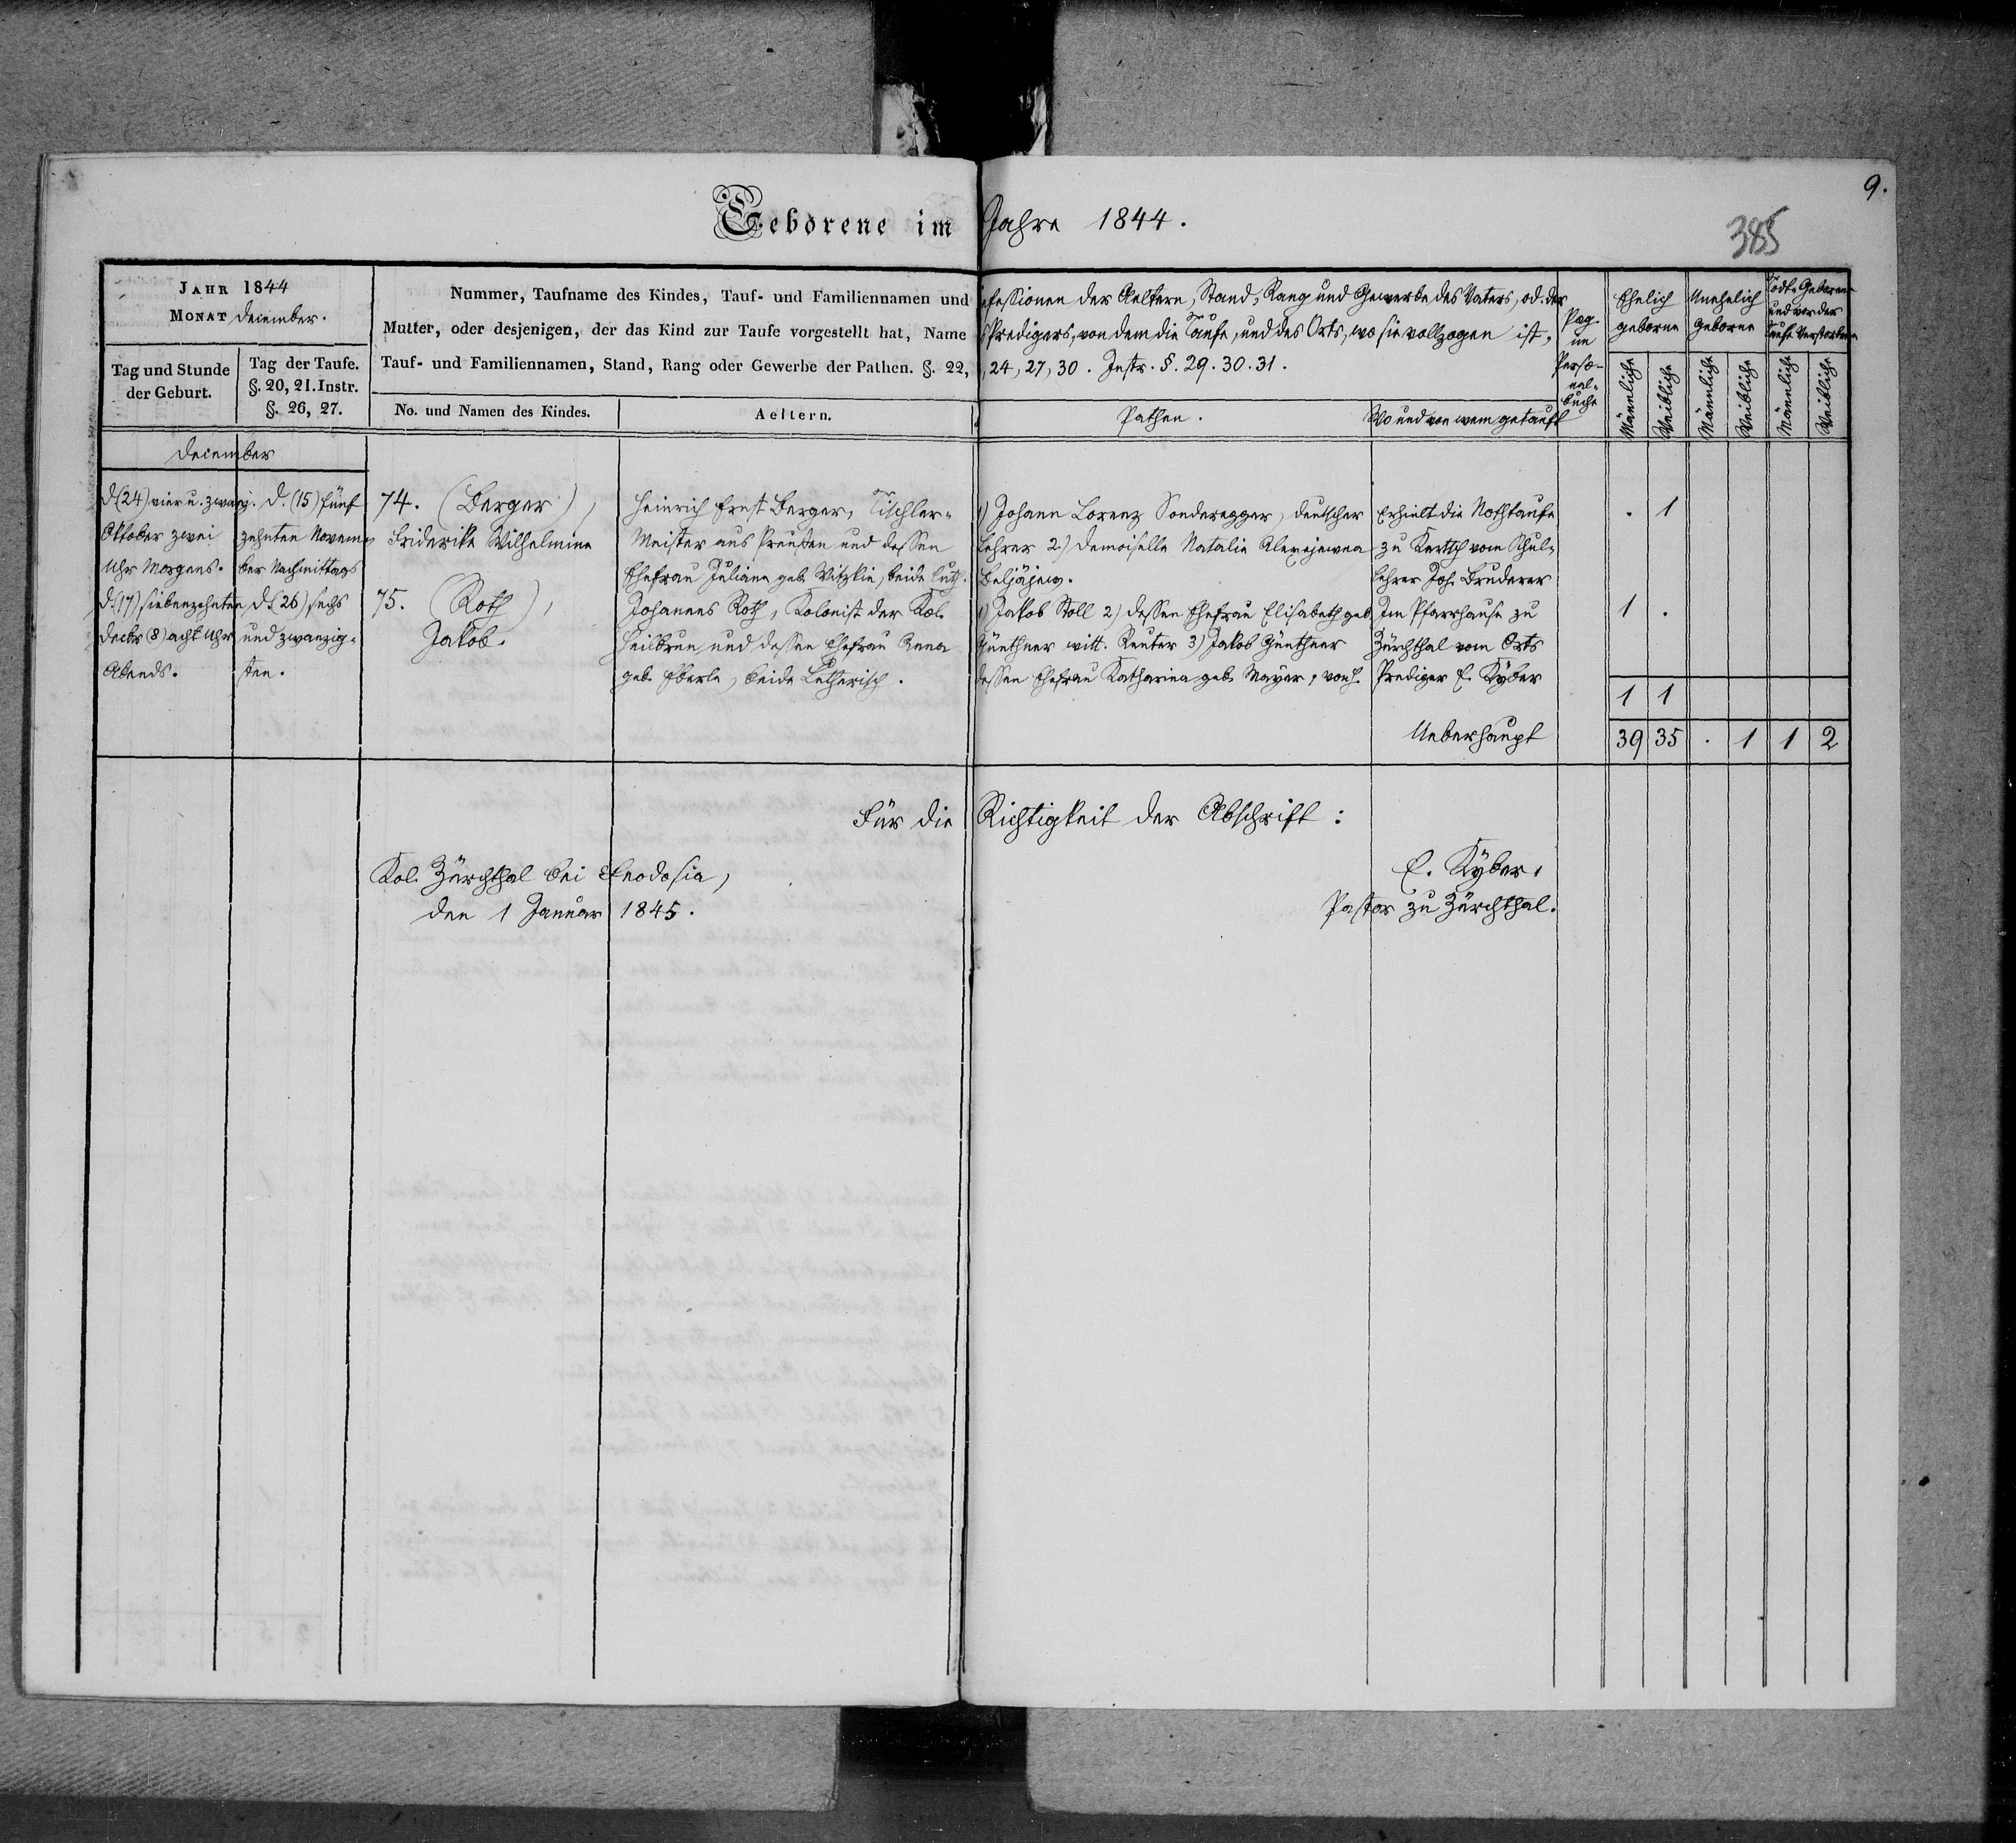 9.
Geborene im Jahre 1844.
385
JAHR 1844
MONAT December.
Tag und Stunde
der Geburt.
Tag der Taufe.
§. 20, 21. Instr.
§. 26, 27.
Nummer, Taufname des Kindes, Tauf- und Familiennamen und
Mutter, oder desjenigen, der das Kind zur Taufe vorgestellt hat, Name
Tauf- und Familiennamen, Stand, Rang oder Gewerbe der Pathen. §. 22,
No. und Namen des Kindes.
Aeltern.
fessionen der Aeltern, Stand, Rang und Gewerbe des Vaters, od. der
Predigers, von dem die Taufe, und des Orts, wo sie vollzogen ist,
24, 27, 30. Instr. §. 29. 30. 31.
Pathen.
Wo und von wem getauft
Pag.
im
Perso-
nal-
buche
Ehelich
geborne
Unehelich
geborne
Todt-Geborene
und vor der
Taufe Verstorbene
Männliche
Weibliche
Männliche
Weibliche
Männliche
Weibliche
December
d. (24) vier u. zwanz.
Oktober zwei
Uhr Morgens.
d. (15) fünf
zehnten Novem-
ber Nachmittags
74. (Berger),
Friderika Wilhelmina
Heinrich Ernst Berger, Tischler-
Meister aus Preußen und dessen
Ehefrau Juliana geb. Vitzkin, beide luth.
1) Johann Lorenz Sonderegger, deutscher
Lehrer 2.) Demoiselle Natalie Alexejewna
Beljäjew.
Erhielt die Nothtaufe
zu Kertsch vom Schul-
lehrer Joh. Bruderer
. 1
d. (17) siebenzehnten
Decbr (8) acht Uhr
Abends.
d. (26) sechs
und zwanzig-
sten.
75. (Roth),
Jakob.
Johannes Roth, Kolonist der Kol.
Heilbrun und dessen Ehefrau Anna
geb. Eberle, beide Lutherisch.
1) Jakob Stoll 2) dessen Ehefrau Elisabeth geb.
Günthner witt. Reuter 3) Jakob Günthner
dessen Ehefrau Katharina geb. Mayer, von H.
Im Pfarrhause zu
Zürchthal vom Orts
Prediger E. Kyber
1 .
1 1
Ueberhaupt
39 35 . 1 1 2
Für die Richtigkeit der Abschrift:
Kol. Zürchthal bei Theodosia,
den 1 Januar 1845.
E. Kyber,
Pastor zu Zürchthal.